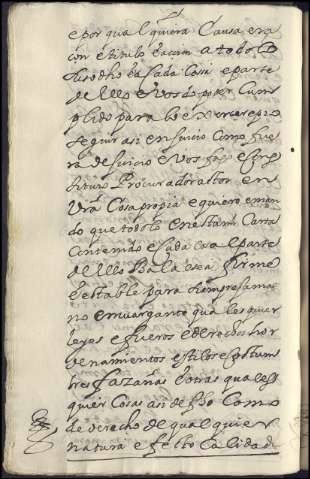 e por qualquiera Causa era
çon e titulo e acion a todo lo
Susodho e a Cada Cosa e parte
de llo e vos do poder Cum
plido para lo exercer e pro
seguir asi en Juicio Como fue
ra de Juicio e vos fago e cons
tituyo Procurador abtor en
vra Cosa propia e quiero e man
do que todo lo en esta mi Carta
Contenido e Cada Cosa e parte
de llo Vala e sea firme
e estable para siempre jamas
no embargante qualesquier
leyes e fueros e derechos hor
denamientos estilos e costum
bres fazañas e otras quales
quier Cosas asi de fho Como
de derecho de qualquier
natura efecto Calidad